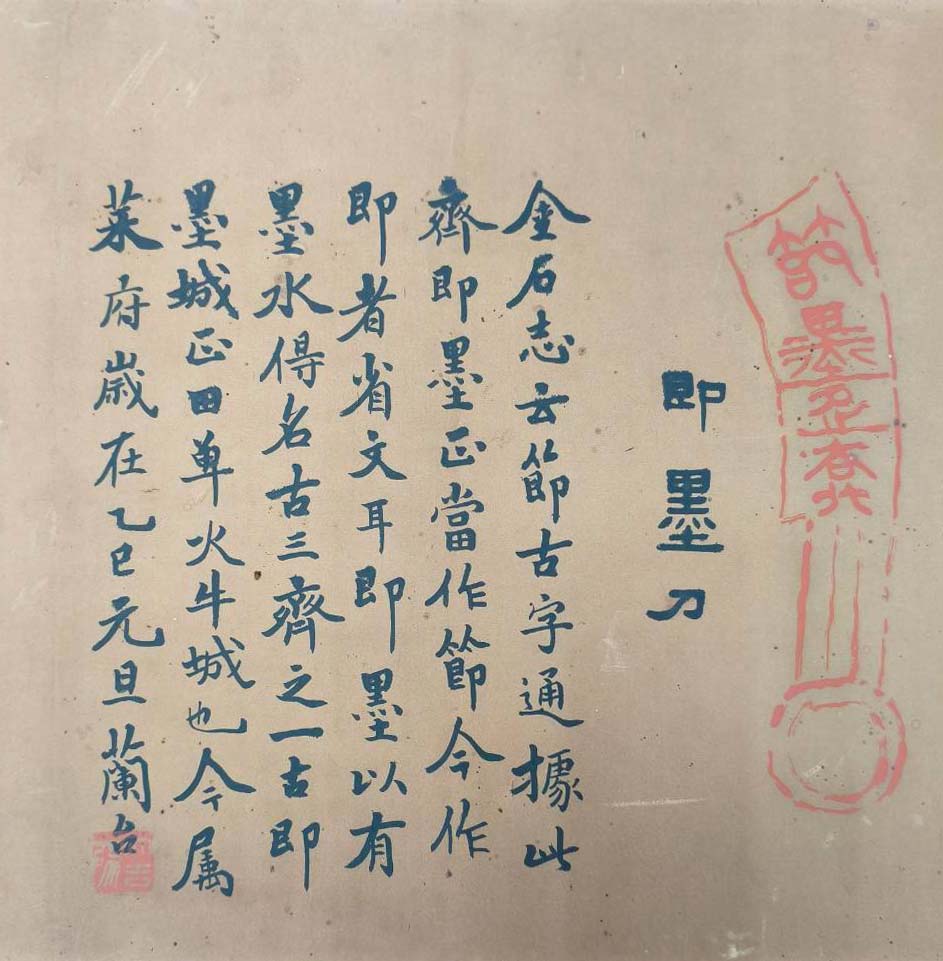 節墨
即墨刀
金石志云節古字通據此
齊即墨正當作節今作
即者省文耳即墨以有
墨水得名古三齊之一古即
墨城正田单火牛城也今属
莱府歲在乙巳元旦蘭台